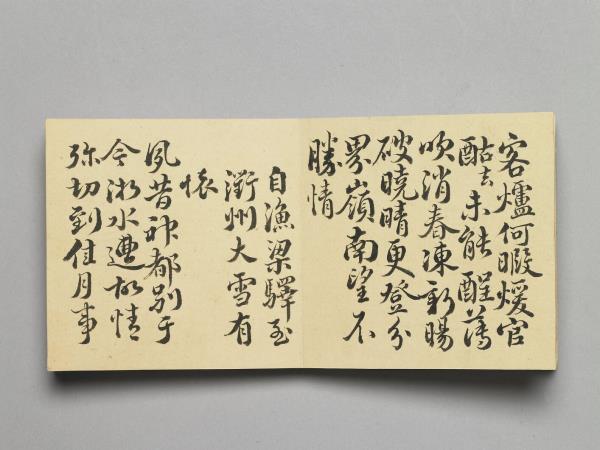 客爐何暇煖官
酤去未能醒薄
吹消春凍新暘
破曉晴更登分
界嶺南望不
勝情
自漁梁驛至
衢州大雪有
懷
夙昔神都別于
今浙水遭故情
弥切到佳月事